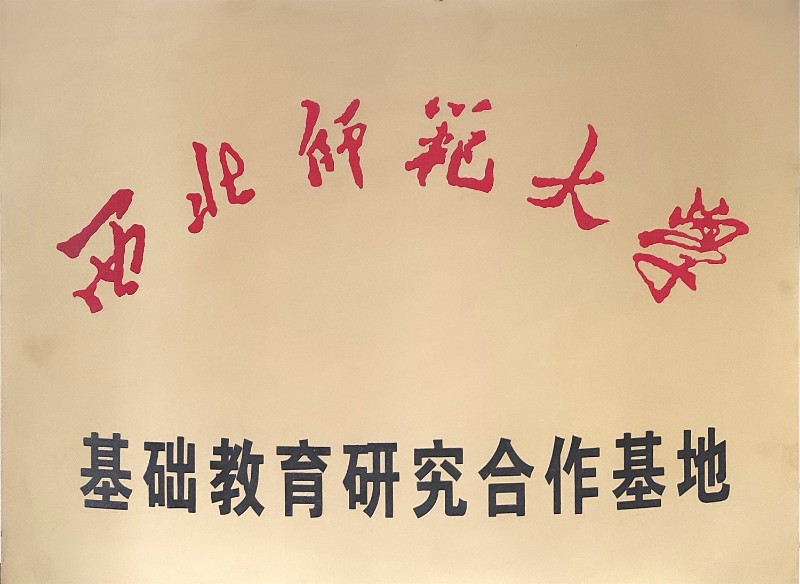 西北师范大学
基础教育研究合作基地